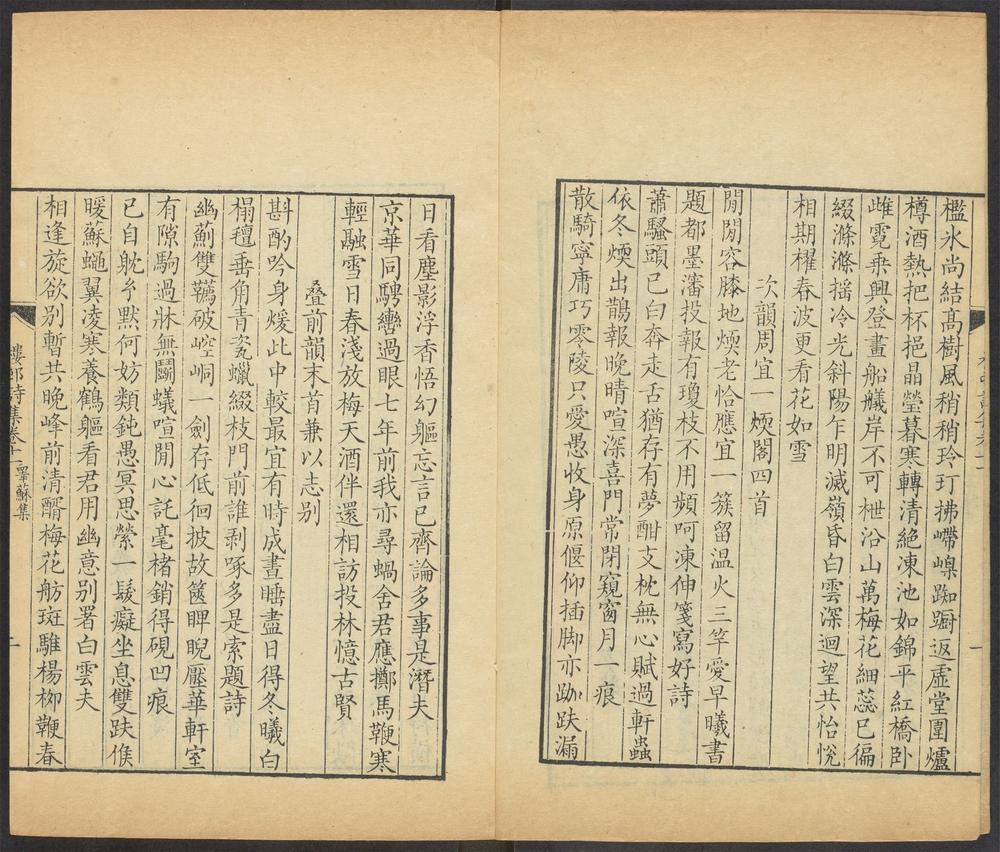 檻氷尚結髙樹風稍稍玲玎拂㠜嵲踟蹰返虛堂圍爐
樽酒熱把杯挹晶瑩暮寒轉清絕凍池如錦平紅橋卧
雌霓乗興登畫船艤岸不可枻沿山萬梅花細蕊已徧
綴滌滌摇冷光斜陽乍明滅嶺昏白雲深迴望共怡悅
相期櫂春波更看花如雪
次韻周宜一煗閣四首
閒閒容膝地煗老恰應宜一簇留温火三竿愛早曦書
題都墨瀋投報有瓊枝不用頻呵凍伸箋寫好詩
蕭騷頭已白奔走舌猶存有夢酣支枕無心賦過軒蟲
依冬煗出鵲報晚晴喧深喜門常閉窺窗月一痕
散騎寧庸巧零陵只愛愚收身原偃仰插脚亦跏趺漏
日看塵影浮香悟幻軀忘言已齊論多事是潛夫
京華同騁轡過眼七年前我亦尋蝸舍君應擲馬鞭寒
輕融雪日春淺放梅天酒伴還相訪投林憶古賢
叠前韻末首兼以志别
斟酌吟身煖此中較最宜有時成晝睡盡日得冬曦白
榻氊垂角青瓷蠟綴枝門前誰剥啄多是索題詩
幽薊雙鞴破崆峒一劍存低徊披故篋睥睨壓華軒室
有隙駒過牀無鬭蟻喧閒心託毫楮銷得硯凹痕
已自躭兮默何妨類鈍愚冥思縈一髮癡坐息雙趺俟
暖蘇蠅翼凌寒養鶴軀看君用幽意别署白雲夫
相逢旋欲别暫共晚峰前清醑梅花舫斑騅楊柳鞭春
縵郎詩集卷十一
蘇集
二
一